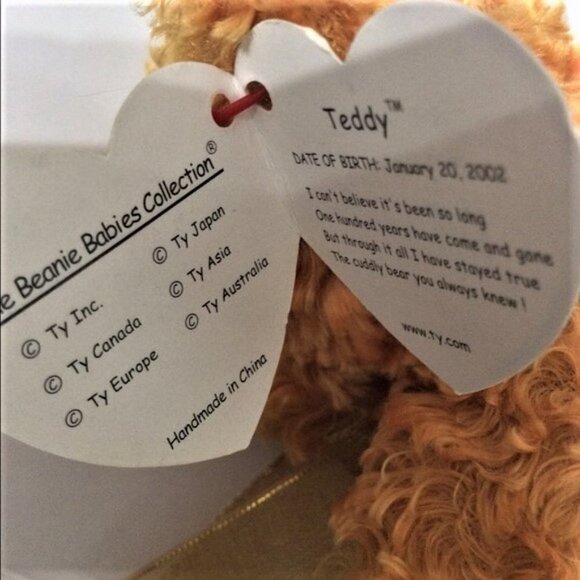 e Beanie Babies Collection®
© Ty Inc.
© Ty Canada
© Ty Europe
© Ty Japan
© Ty Asia
© Ty Australia
Handmade in China
Teddy™
DATE OF BIRTH: January 20, 2002
I can't believe it's been so long
One hundred years have come and gone
But through it all I have stayed true
The cuddly bear you always knew !
www.ty.com